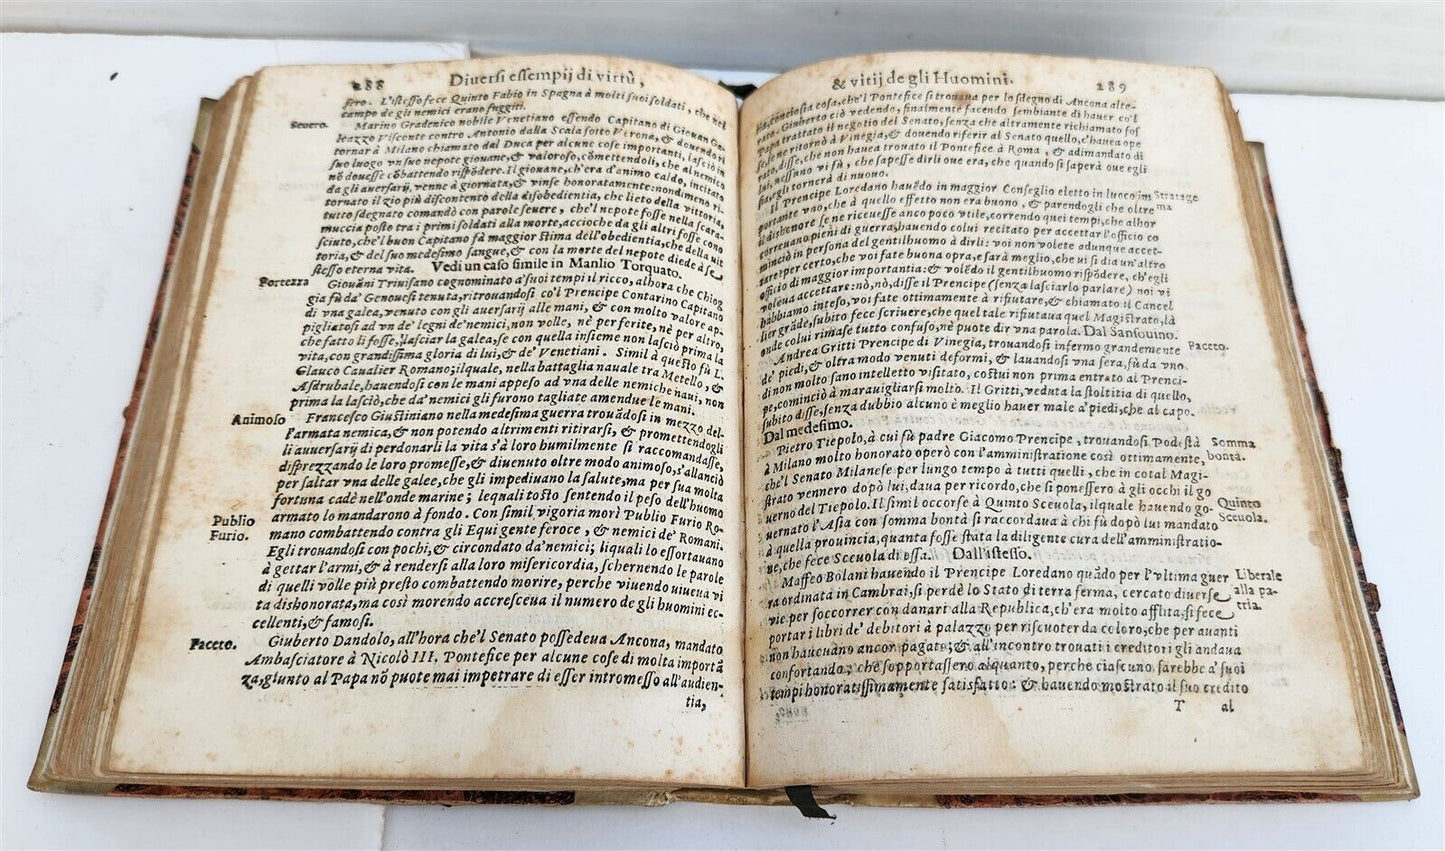 288 Diuersi essempij di virtù,
sero. L'istesso fece Quinto Fabio in Spagna à molti suoi soldati, che nel
campo de gli nemici erano fuggiti.
Seuero. Marino Gradenico nobile Venetiano essendo Capitano di Giouan Ga-
leazzo Visconte contro Antonio dalla Scala sotto Verona, & douendo ri
tornar à Milano chiamato dal Duca per alcune cose importanti, lasciò in
suo luogo vn suo nepote giouane, & valoroso, cõmettendoli, che al nemico
nõ douesse cõbattendo rispõdere. Il giouane, ch'era d'animo caldo, incitato
da gli auersarij, venne à giornata, & vinse honoratamente: nondimeno ri-
tornato il zio più discontento della disobedientia, che lieto della vittoria,
tutto sdegnato comandò con parole seuere, che'l nepote fosse nella scara-
muccia posto tra i primi soldati alla morte, accioche da gli altri fosse cono
sciuto, che'l buon Capitano fà maggior stima dell'obedientia, che della vit
toria, & del suo medesimo sangue, & con la morte del nepote diede à se
stesso eterna vita. Vedi un caso simile in Manlio Torquato.
Fortezza Giouãni Triuisano cognominato a'suoi tempi il ricco, alhora che Chiog
gia fù da' Genouesi tenuta, ritrouandosi co'l Prencipe Contarino Capitano
di vna galea, venuto con gli auersarij alle mani, & con molto valore ap-
pigliatosi ad vn de' legni de'nemici, non volle, nè per ferite, nè per altro,
che fatto li fosse, lasciar la galea, se con quella insieme non lasciò prima la
vita, con grandissima gloria di lui, & de' Venetiani. Simil à questo fù L.
Glauco Caualier Romano; ilquale, nella battaglia nauale tra Metello, &
Asdrubale, hauendosi con le mani appeso ad vna delle nemiche naui, non
prima la lasciò, che da'nemici gli furono tagliate amendue le mani.
Animoso Francesco Giustiniano nella medesima guerra trouãdosi in mezzo del-
l'armata nemica, & non potendo altrimenti ritirarsi, & promettendogli
li auuersarij di perdonarli la vita s'à loro humilmente si raccomandasse,
disprezzando le loro promesse, & diuenuto oltre modo animoso, s'allanciò
per saltar vna delle galee, che gli impediuano la salute, ma per sua molta
fortuna cadè nell'onde marine; lequali tosto sentendo il peso dell'huomo
armato lo mandarono à fondo. Con simil vigoria morì Publio Furio Ro-
Publio
Furio. mano combattendo contra gli Equi gente feroce, & nemici de' Romani.
Egli trouandosi con pochi, & circondato da'nemici; liquali lo essortauano
à gettar l'armi, & à rendersi alla loro misericordia, schernendo le parole
di quelli volle più presto combattendo morire, perche viuendo uiueua vi
ta dishonorata, ma così morendo accresceua il numero de gli huomini ec-
cellenti, & famosi.
Faceto. Giuberto Dandolo, all'hora che'l Senato possedeua Ancona, mandato
Ambasciatore à Nicolò III. Pontefice per alcune cose di molta importã
za, giunto al Papa nõ puote mai impetrare di esser intromesso all'audien-
tia,
& vitij de gli Huomini. 289
tia, conciosia cosa, che'l Pontefice si trouaua per lo sdegno di Ancona alte-
rato. Gimberto ciò vedendo, finalmente facendo sembiante di hauer co'l
Papa trattato il negotio del Senato, senza che altramente richiamato fos
se, se ne ritornò à Vinegia, & douendo riferir al Senato quello, c'haueа ope
rato, disse, che non hauea trouato il Pontefice à Roma, & adimandato di
lui, nissuno vi fù, che sapesse dirli oue era, che quando si saperà oue egli
sia, egli tornerà di nuouo.
Il Prencipe Loredano hauẽdo in maggior Conseglio eletto in luoco im Stratage
portante vno, che à quello effetto non era buono, & parendogli che oltre ma
il dishonore se ne riceuesse anco poco vtile, correndo quei tempi, che alhor
correuano pieni di guerra, hauendo colui recitato per accettar l'officio co
minciò in persona del gentilhuomo à dirli: voi non volete adunque accet-
tare? per certo, che voi fate buona opra, e sarà meglio, che ui si dia un'altro
officio di maggior importantia: & volẽdo il gentilhuomo rispõdere, ch'egli
voleua accettare: nò, nò, disse il Prencipe (senza lasciarlo parlare) noi vi
habbiamo inteso, voi fate ottimamente à rifiutare, & chiamato il Cancel
lier grãde, subito fece scriuere, che quel tale rifiutaua quel Magistrato, là
onde colui rimase tutto confuso, nè puote dir vna parola. Dal Sansouino.
Andrea Gritti Prencipe di Vinegia, trouandosi infermo grandemente Faceto.
de' piedi, & oltra modo venuti deformi, & lauandosi vna sera, fù da vno
di non molto sano intelletto visitato, costui non prima entrato al Prenci-
pe, cominciò à marauigliarsi molto. Il Gritti, veduta la stoltitia di quello,
subito disse, senza dubbio alcuno è meglio hauer male a'piedi, che al capo.
Dal medesimo.
Pietro Tiepolo, à cui fù padre Giacomo Prencipe, trouandosi Podestà Somma
à Milano molto honorato operò con l'amministratione così ottimamente, bontà.
che'l Senato Milanese per lungo tempo à tutti quelli, che in cotal Magi-
strato vennero dopò lui, daua per ricordo, che si ponessero à gli occhi il go
uerno del Tiepolo. Il simil occorse à Quinto Sceuola, ilquale hauendo go- Quinto
uernato l'Asia con somma bontà si raccordaua à chi fù dopò lui mandato Sceuola.
à quella prouincia, quanta fosse stata la diligente cura dell'amministratio-
ne, che fece Sceuola di essa. Dall'istesso.
Maffeo Bolani hauendo il Prencipe Loredano quãdo per l'vltima guer Liberale
ra ordinata in Cambrai, si perdè lo Stato di terra ferma, cercato diuerse alla pa-
vie per soccorrer con danari alla Republica, ch'era molto afflita, si fece tria.
portar i libri de' debitori à palazzo per riscuoter da coloro, che per auanti
non haueuano ancor pagato; & all'incontro trouati i creditori gli andaua
confortando, che sopportassero alquanto, perche ciascuno sarebbe a' suoi
tempi honoratissimamente satisfatto: & hauendo mostrato il suo credito
T al